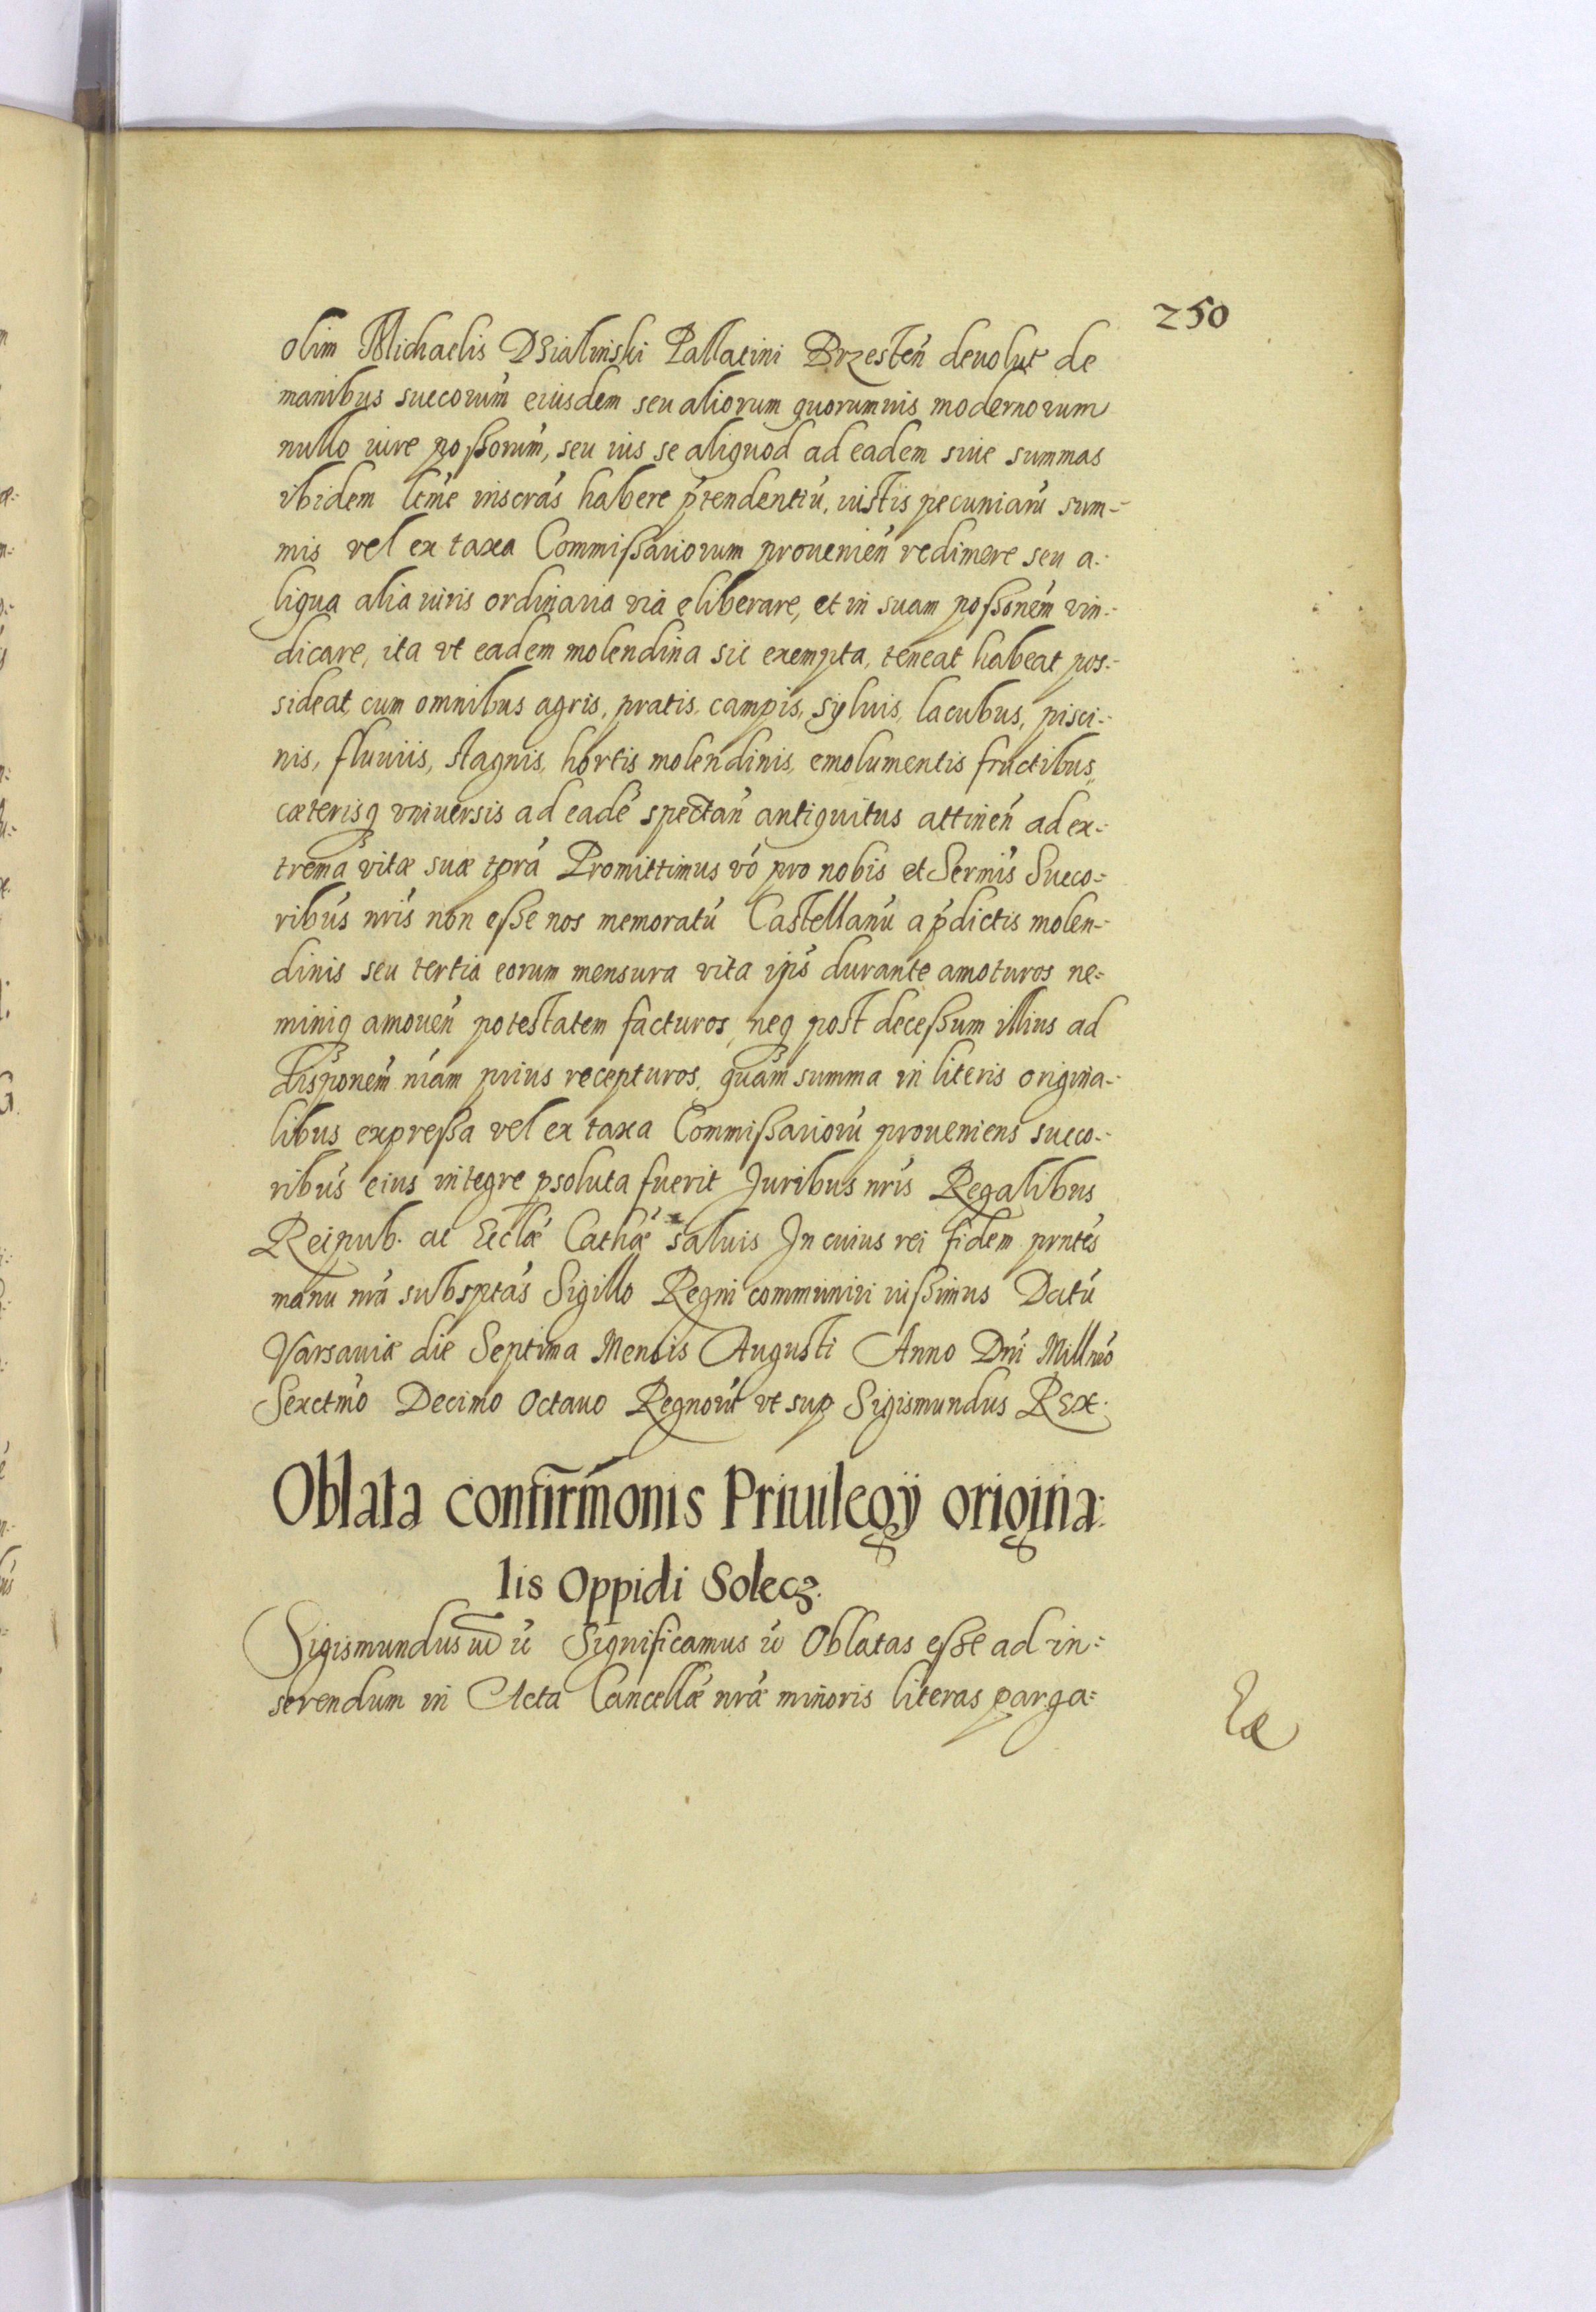 250
olim Michaelis Dzialinski Pallatini Brzesteń devolut de
manibus succorum̃ eiusdem seu aliorum quorumuis modernorum
nullo iure possorum̃, seu ius se aliquod ad eadem siue summas
ibidem ltmẽ inscrãs habere p̃tendentiũ, iustis pecuniarũ sum-
mis vel ex taxa Commissariorum prouenieñ redimere seu a-
liqua alia iuris ordinaria via eliberare, et in suam possonem̃ vin-
dicare, ita vt eadem molendina sic exempta, teneat habeat pos-
sideat, cum omnibus agris, pratis, campis, syluis, lacubus, pisci-
nis, fluuiis, stagnis, hortis molendinis, emolumentis fructibus,
cæterisq vniuersis ad eadẽ spectañ antiquitus attineñ ad ex-
trema vitæ suæ tp̃ra Promittimus vo̊ pro nobis et Sermis̃ Succo-
ribus̃ nr̃is non esse nos memoratũ Castellanũ a p̃dictis molen-
dinis seu tertia eorum mensura vita ip̃s durante amoturos ne-
miniq amoueñ potestatem facturos, neq post decessum illius ad
disponem̃ nr̃am prius recepturos, quam summa in literis origina-
libus expressa vel ex taxa Commissariorũ proueniens succo-
ribus̃ eius integre psoluta fuerit Juribus nr̃is Regalibus
Reipub. ac Eccl̃æ Cath̃æ saluis In cuius rei fidem prñtes
manu nr̃a subsptãs Sigillo Regni communiri iussimus Datũ
Varsauiæ die Septima Mensis Augusti Anno Dñi Millmõ
Sexctmõ Decimo Octauo Regnorũ vt sup Sigismundus Rex.
Oblata confirm̃onis Priuilegÿ origina-
lis Oppidi Solecz.
Sigismundus Significamus Oblatas esse ad in-
serendum in Acta Cancell̃æ nr̃æ minoris literas parga-